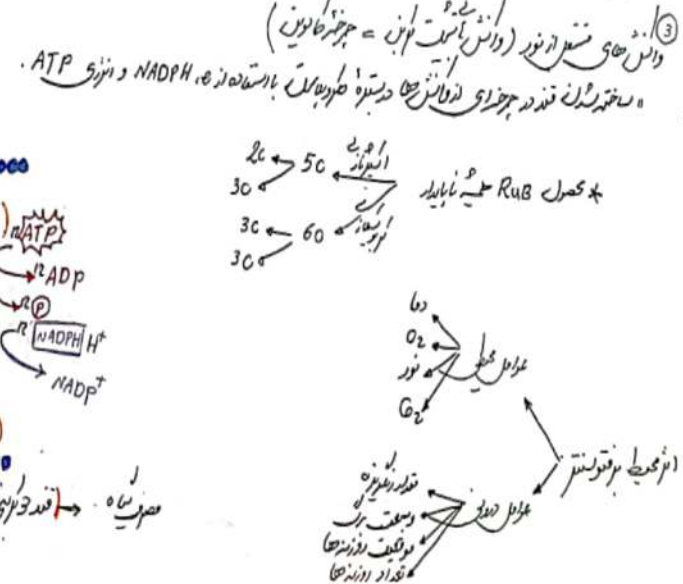 ③
واکنش های مستقل از نور (واکنش تثبیت کربن = چرخه کالوین)
• ساخته شدن قند در چرخه ای از واکنش ها در بستره کلروپلاست با استفاده از e⁻، NADPH و انرژی ATP.
* محصول RuB همیشه ناپایدار
اکسیژنازی
5C
2C
3C
کربوکسیلازی
6C
3C
3C
ATP
12 ADP
12 P
12 NADPH H⁺
NADP⁺
قند 3 کربنی
مصرف گیاه
اثر محیط بر فتوسنتز
عوامل محیطی
دما
O2
نور
CO2
عوامل درونی
تعداد رنگیزه
وسعت برگ
موقعیت روزنه ها
تعداد روزنه ها